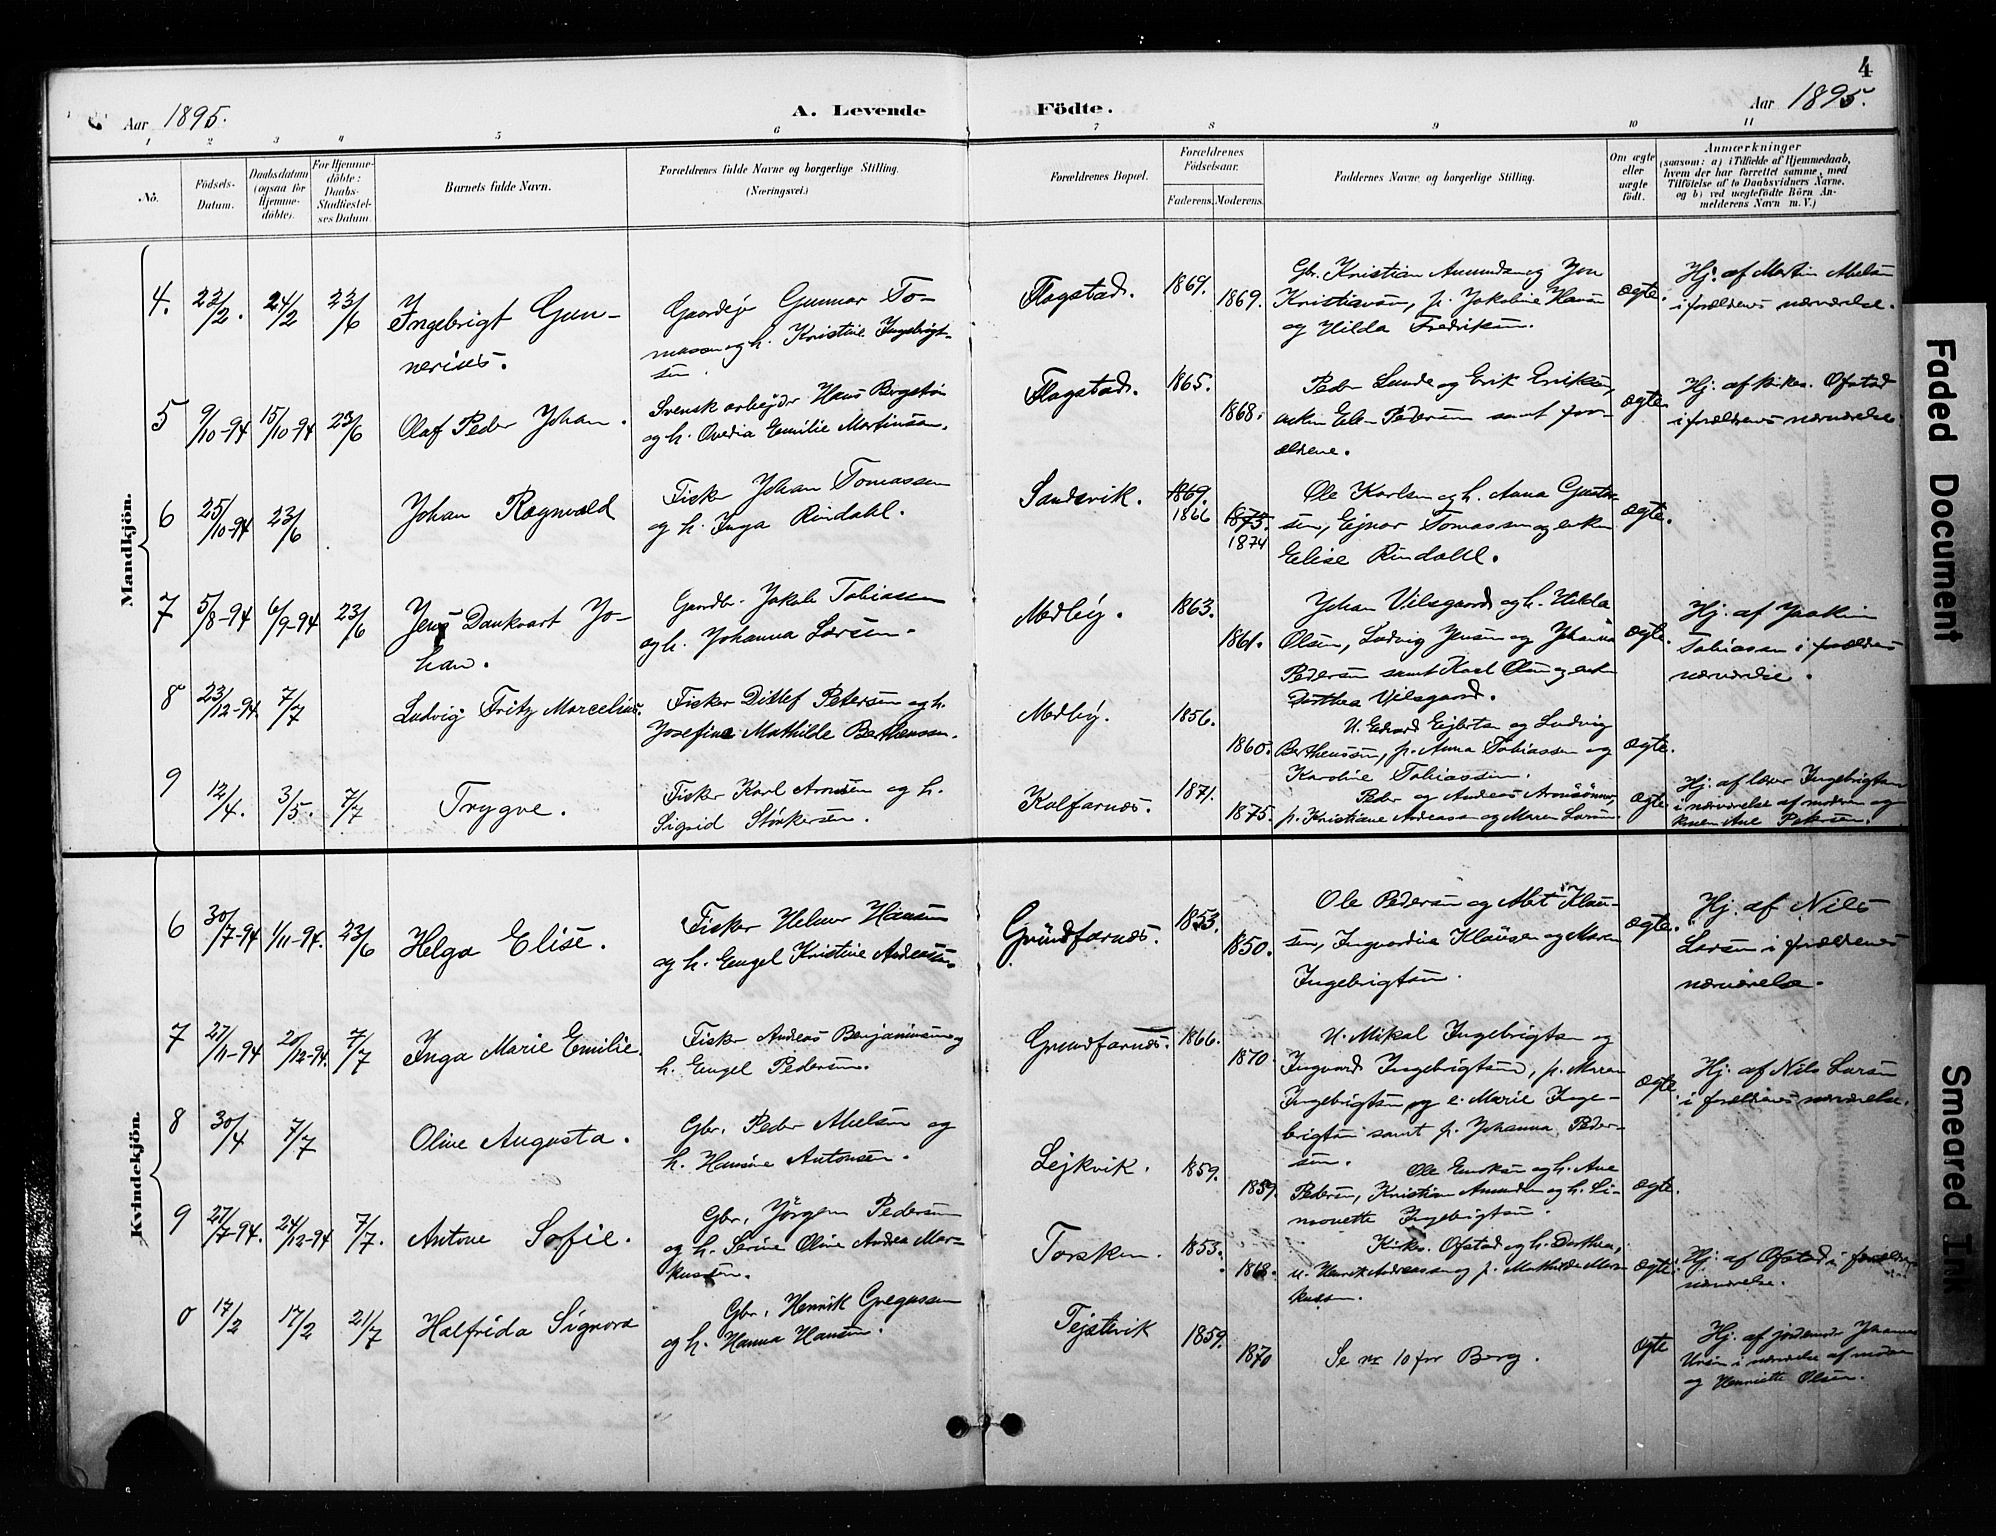 4
Aar 1895. A. Levende Födte. Aar 1895.
1 2 3 4 5 6 7 8 9 10 11
No.
Födsels-
Datum.
Daabsdatum
(ogsaa for
Hjemme-
döbte).
For Hjemme-
döbte:
Daabs-
Stadfæstel-
ses Datum.
Barnets fulde Navn.
Forældrenes fulde Navne og borgerlige Stilling.
(Næringsvei.)
Forældrenes Bopæl.
Forældrenes
Födselsaar.
Faderens. Moderens.
Faddernes Navne og borgerlige Stilling.
Om ægte
eller
uægte
födt.
Anmærkninger
(saasom: a) i Tilfælde af Hjemmedaab,
hvem der har forrettet samme, med
Tilföielse af to Daabsvidners Navne,
og b) ved uægtefödte Börn An-
melderens Navn m. V.)
Mandkjön.
4. 22/2. 24/2 23/6
Ingebrigt Gun-
nerius.
Gaardejer Gunnar To-
massen og h. Kristine Ingebrigt-
sen.
Flagstad. 1869. 1869.
Gbr. Kristian Amundsen og Jon
Kristiansen, p. Jakobine Hansen
og Hilda Fredriksen.
ægte.
Hj. af Martin Abelsen
i forældrenes nærværelse.
5 9/10-94 15/10-94 23/6
Olaf Peder Johan.
Svensk arbejder Hans Bergström
og h. Ovedia Emilie Martinsen.
Flagstad. 1865. 1868.
Peder Lunde og Erik Eriksen,
enken Elen Pedersen samt for-
ældrene.
ægte.
Hj. af kirkes. Ofstad
i forældrenes nærværelse.
6 25/10-94 23/6
Johan Ragnvald
Fisker Johan Tomassen
og h. Inga Rindahl.
Sandsvik. 1869. 1866 1875. 1874
Ole Karlsen og h. Anna Gustav-
sen, Ejnar Tomassen og enken
Elise Rindahl.
ægte.
7 5/8-94 6/9-94 23/6
Jens Dankvart Jo-
han.
Gaardbr. Jakob Tobiassen
og h. Johanna Larsen.
Medby. 1863. 1861.
Johan Vilsgaard og h. Hilda
Olsen, Ludvig Jensen og Johanna
Pedersen samt Karl Olsen og enke
Dorthea Vilsgaard.
ægte.
Hj. af Joakim
Tobiassen i forældres
nærværelse.
8 23/12-94. 7/7
Ludvig Fritz Marcelius.
Fisker Ditlef Petersen og h.
Josefine Mathilde Bertheussen.
Medby. 1856. 1860.
U. Edvard Ejlertsen og Ludvig
Bertheussen, p. Anna Tobiassen og
Karoline Tobiassen.
ægte.
9 12/4. 3/5. 7/7
Trygve.
Fisker Karl Aronsen og h.
Sigrid Störkersen.
Kalfarnæs. 1871. 1875.
Peder og Andreas Aronsönner,
p. Kristiane Andreassen og Maren Larsen.
ægte.
Hj. af lærer Ingebrigtsen
i nærværelse af moderen og
konen Ane Petersen.
Kvindekjön.
6 30/7-94 1/11-94. 23/6
Helga Elise.
Fisker Helmer Hansen
og h. Engel Kristine Andreassen.
Grundfarnæs. 1853. 1850.
Ole Pedersen og Abel Klau-
sen, Ingvardine Klausen og Maren
Ingebrigtsen.
ægte.
Hj. af Nils
Larsen i forældrenes
nærværelse.
7 27/11-94 20/12-94. 7/7
Inga Marie Emilie.
Fisker Andreas Benjaminsen og
h. Engel Pedersen.
Grundfarnæs. 1866. 1870.
U. Mikal Ingebrigtsen og
Ingvard Ingebrigtsen, p. Maren
Ingebrigtsen og e. Marie Inge-
brigtsen samt p. Johanna Peder-
sen.
ægte.
Hj. af Nils Larsen
i forældrenes nærværelse.
8 30/4 7/7
Oline Augusta.
Gbr. Peder Abelsen og
h. Hansine Antonsen.
Lejkvik. 1859. 1859.
Ole Enoksen og h. Ane
Pedersen, Kristian Amundsen og h. Li-
monette Ingebrigtsen.
ægte.
9 27/7-94. 24/12-94 7/7.
Antone Sofie.
Gbr. Jörgen Pedersen
og h. Serine Oline Andrea Mar-
kussen.
Torsken. 1853. 1868.
Kirks. Ofstad og h. Dorthea,
u. Henrik Andreassen og p. Mathilde Mar-
kussen.
ægte.
Hj. af Ofstad i forældres
nærværelse.
0 17/2 17/2 21/7
Halfrida Signora
Gbr. Henrik Gregussen
og h. Hanna Hansen.
Tejstevik 1859. 1870
Se nr 10 for Berg.
ægte
Hj. af jordemoder Johanna
Ursin i nærværelse af moderen
og Henriette Olsen.
Faded Document
Smeared Ink